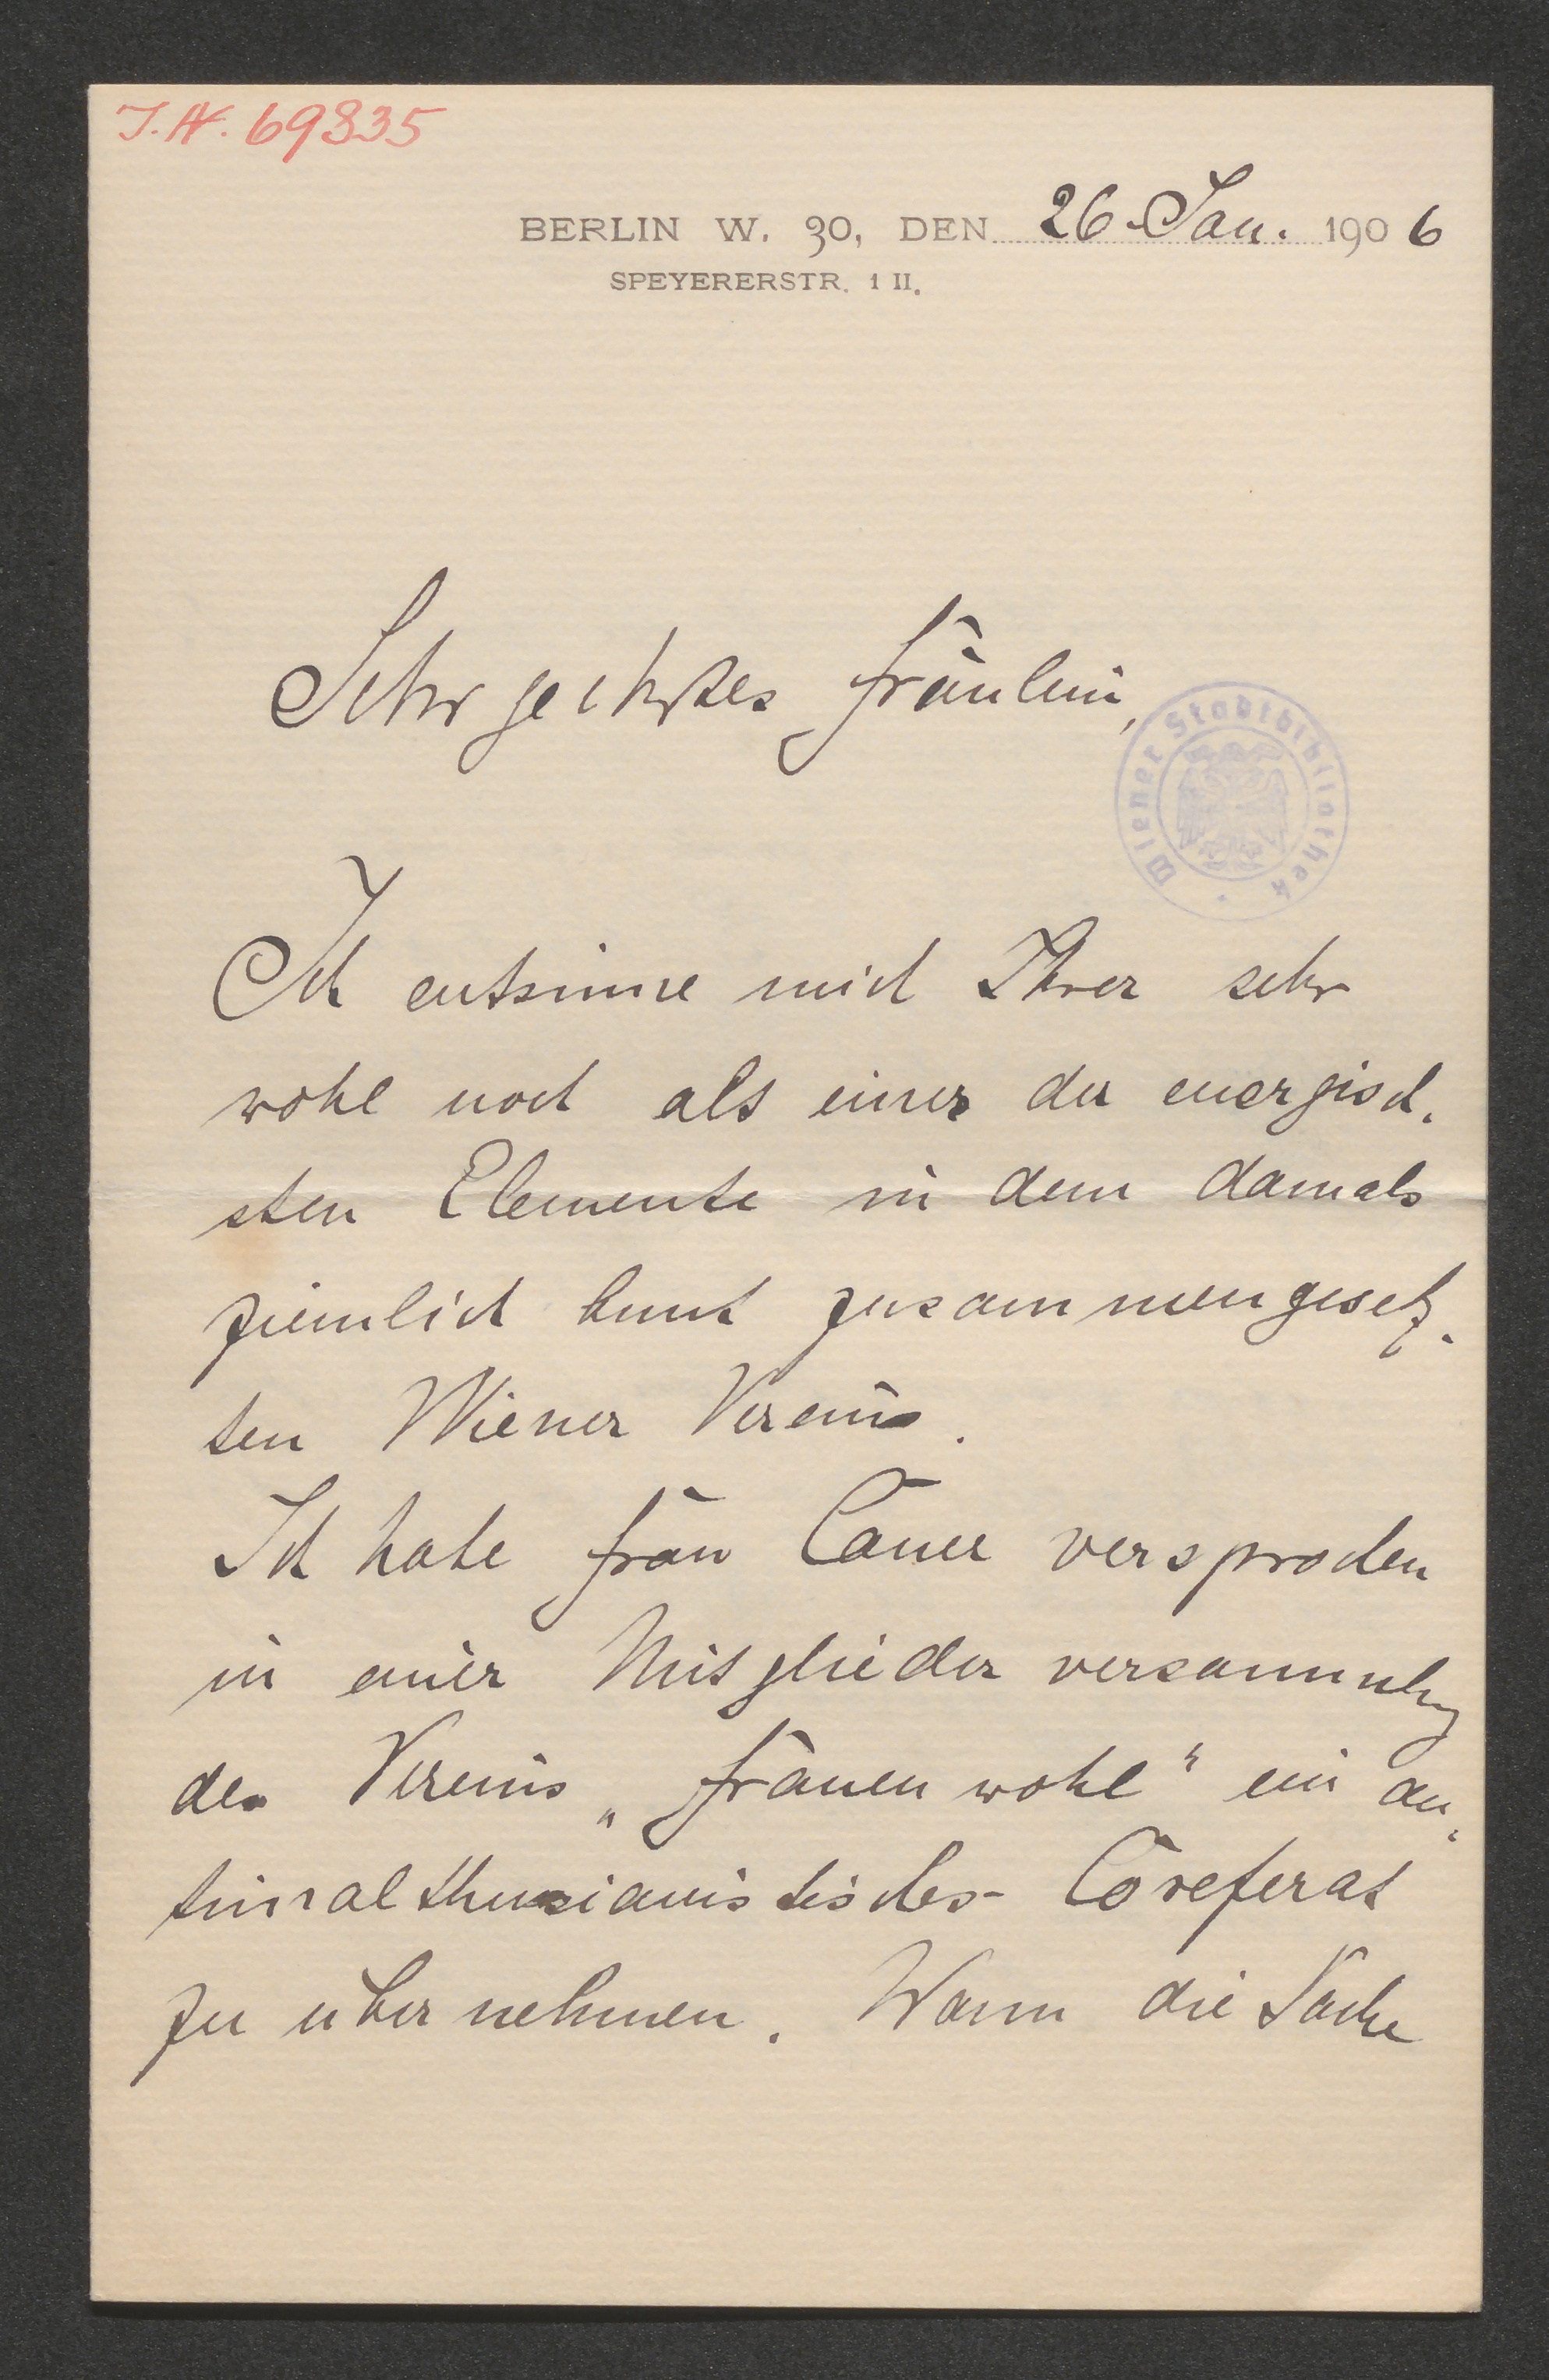 J.N. 69835
BERLIN W. 30, DEN 26. Jan. 1906
SPEYERERSTR. 1 II.
Sehr geehrtes Fräulein,
Wiener Stadtbibliothek
Ich entsinne mich Ihrer sehr
wohl noch als eines der energisch-
sten Elemente in dem damals
ziemlich bunt zusammengesetz-
ten Wiener Verein.
Ich habe Frau Cauer versprochen
in einer Mitgliederversammlung
des Vereins „Frauenwohl" ein an-
timalthusianistisches Coreferat
zu übernehmen. Wann die Sache